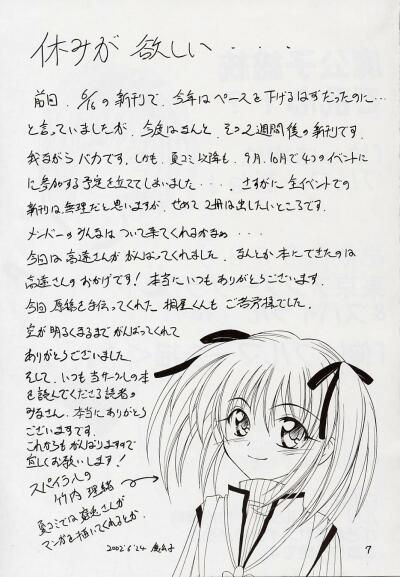 休みが 欲しい・・・・
前回、6/16の新刊で、今年はペースを下げるはずだったのに…
と言っていましたが、今度はなんと、その2週間後の新刊です。
我ながらバカです。しかも、夏コミ以降も、9月、10月で4つのイベントに
に参加する予定を立ててしまいました・・・・。さすがに全イベントでの
新刊は無理だと思いますが、せめて2冊は出したいところです。
メンバーのみんなはついて来てくれるかなぁ・・・
今回は高遠さんががんばってくれました。なんとか本にできたのは
高遠さんのおかげです!本当にいつもありがとうございます。
今回 原稿を手伝ってくれた 相星くんも ご苦労様でした。
空が明るくなるまでがんばってくれて
ありがとうございました
そして、いつも当サークルの本
を読んでくださる読者の
みなさん、本当にありがとう
ございますです。
これからもがんばりますので
宜しくお願いします!
スパイラルの
竹内 理緒
夏コミでは高遠さんが
マンガを描いてくれるとか。
2002.6.24
7